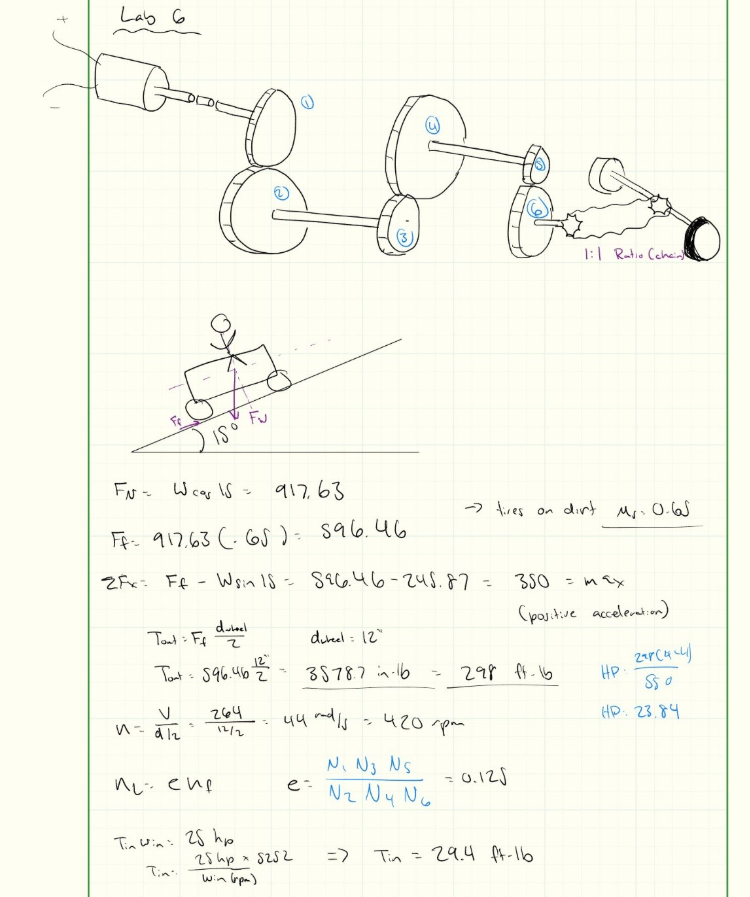 Lab 6
+
-
①
②
③
④
⑤
⑥
1:1 Ratio (chain)
Ff
FN
15°
FN = W cos 15 = 917.63
→ tires on dirt μs = 0.65
Ff = 917.63 (.65) = 596.46
ΣFx = Ff - W sin 15 = 596.46 - 245.87 = 350 = max
(positive acceleration)
Tout = Ff dwheel/2 dwheel = 12"
Tout = 596.46 12"/2 = 3578.7 in·lb = 298 ft-lb
HP = 298(44)/550
HP = 23.84
n = V/(d/2) = 264/(12/2) = 44 rad/s = 420 rpm
nL = e nf e = N1 N3 N5 / N2 N4 N6 = 0.125
Tin win = 25 hp
Tin = 25 hp × 5252 / win (rpm) => Tin = 29.4 ft-lb